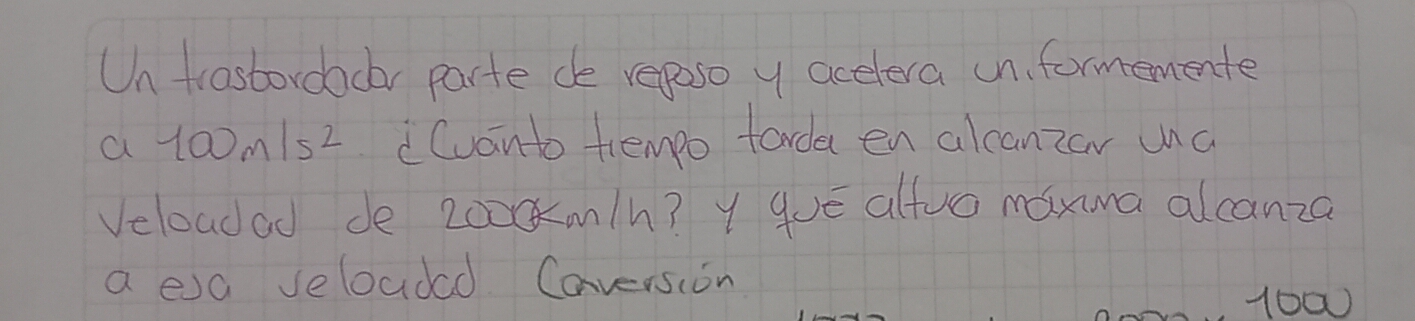 Un trasbordador parte de reposo y acelera uniformemente
a 100m/s² ¿Cuánto tiempo tarda en alcanzar una
velocidad de 2000km/h? y qué altura máxima alcanza
a esa velocidad Conversión
1000